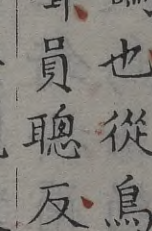 也從鳥
員聰反